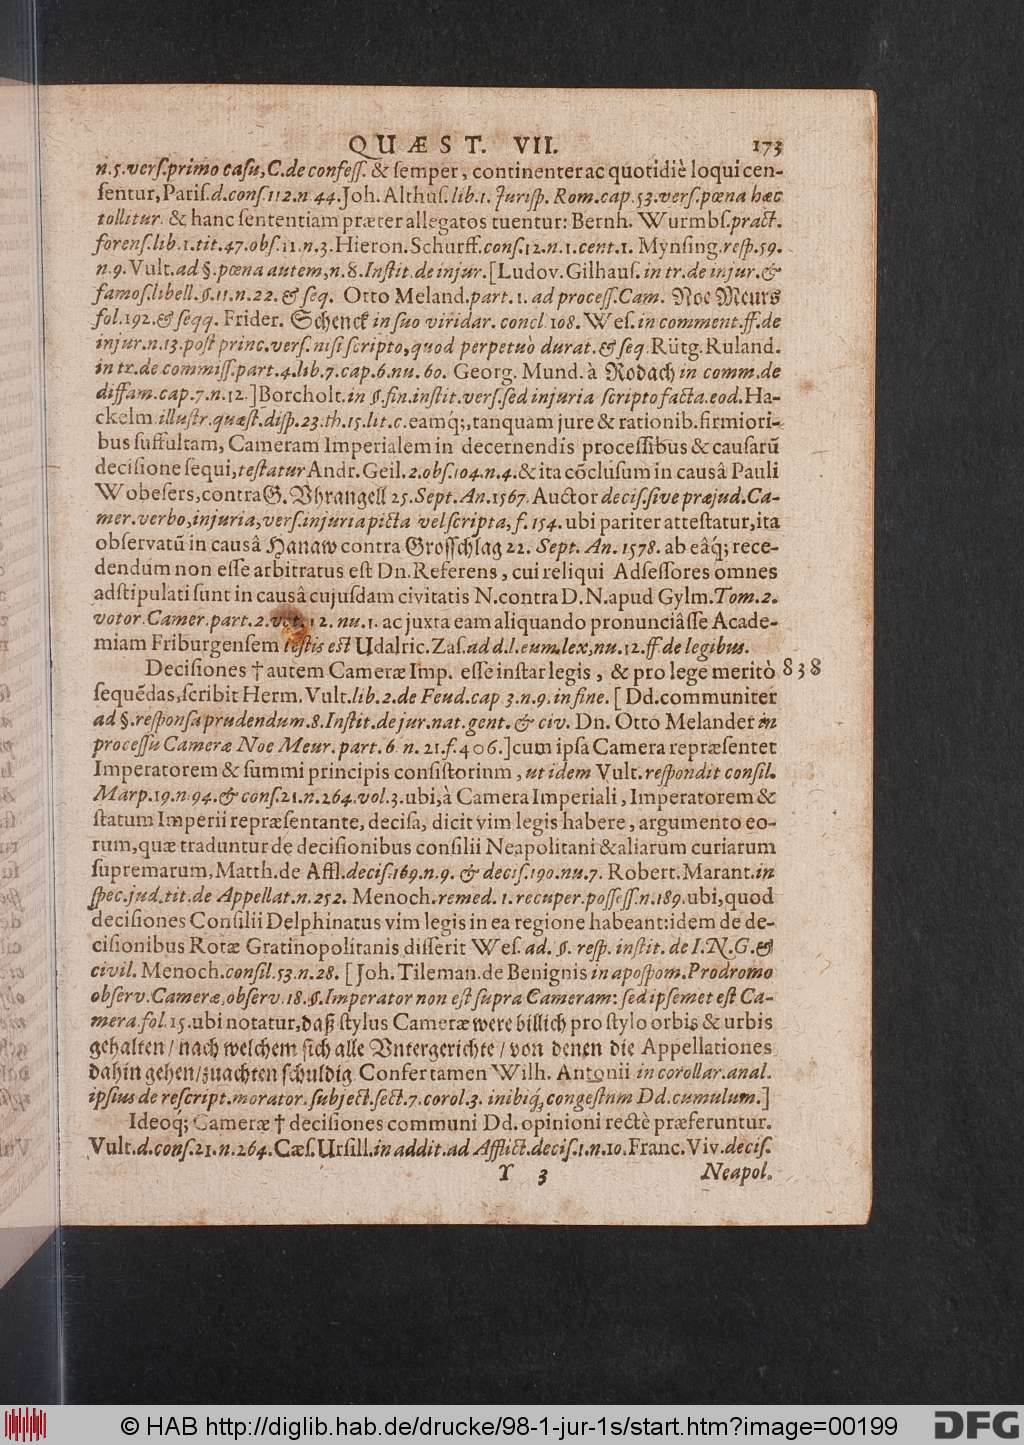 QUÆST. VII. 173
n.5.vers.primo casu, C.de confess. & semper, continenter ac quotidiè loqui cen-
sentur, Paris.d.cons.112.n 44.Joh. Althus.lib.1. Jurisp. Rom.cap.53.vers.pœna hæc
tollitur. & hanc sententiam præter allegatos tuentur: Bernh. Wurmbs.pract.
forens.lib.1.tit.47.obs.11.n.3.Hieron.Schurff.cons.12.n.1.cent.1. Mynsing.resp.59.
n.9.Vult.ad §.pœna autem,n.8.Instit.de injur.[Ludov.Gilhaus.in tr.de injur.&
famos.libell.§.11.n.22.& seq. Otto Meland.part.1.ad process.Cam. Noe Meurs
fol.192.& seqq. Frider. Schenck in suo viridar. concl.108.Wes.in comment.ff.de
injur.n.13.post princ.vers.nisi scripto,quod perpetuò durat.& seq.Rütg.Ruland.
in tr.de commiss.part.4.lib.7.cap.6.nu.60. Georg. Mund.à Rodach in comm.de
diffam.cap.7.n.12.]Borcholt.in §.fin.instit.vers.sed injuria scripto facta.eod.Ha-
ckelm.illustr.quæst.disp.23.th.15.lit.c.eamq́;,tanquam jure & rationib.firmiori-
bus suffultam, Cameram Imperialem in decernendis processibus & causarũ
decisione sequi,testatur Andr. Geil.2.obs.104.n.4.& ita cõclusum in causâ Pauli
Wobesers,contra G. Vhrangell 25.Sept.An.1567. Auctor decis.sive præjud.Ca-
mer.verbo,injuria,vers.injuria picta vel scripta,f.154. ubi pariter attestatur,ita
observatũ in causâ Hanaw contra Grosschlag 22. Sept. An. 1578. ab eâq́; rece-
dendum non esse arbitratus est Dn.Referens, cui reliqui Adsessores omnes
adstipulati sunt in causâ cujusdam civitatis N.contra D.N.apud Gylm.Tom.2.
votor.Camer.part.2.vot.12.nu.1. ac juxta eam aliquando pronunciâsse Acade-
miam Friburgensem testis est Udalric.Zas.ad d.l.eum.lex,nu.12.ff.de legibus.
Decisiones † autem Cameræ Imp. esse instar legis, & pro lege meritò 838
sequẽdas,scribit Herm. Vult.lib.2.de Feud.cap 3.n.9.in fine. [ Dd.communiter
ad §.responsa prudendum.8.Instit.de jur.nat.gent.& civ. Dn. Otto Melander in
processu Cameræ Noe Meur.part.6.n.21.f.406.]cum ipsa Camera repræsentet
Imperatorem & summi principis consistorium, ut idem Vult.respondit consil.
Marp.19.n.94.& cons.21.n.264.vol.3.ubi,à Camera Imperiali, Imperatorem &
statum Imperii repræsentante, decisa, dicit vim legis habere, argumento eo-
rum,quæ traduntur de decisionibus consilii Neapolitani & aliarum curiarum
supremarum, Matth.de Affl.decis.169.n.9. & decis.190.nu.7. Robert.Marant.in
spec.jud.tit.de Appellat.n.252. Menoch.remed.1.recuper.possess.n.189.ubi,quod
decisiones Consilii Delphinatus vim legis in ea regione habeant:idem de de-
cisionibus Rotæ Gratinopolitanis disserit Wes.ad.§.resp.instit.de I.N.G.&
civil. Menoch.consil.53.n.28. [ Joh. Tileman.de Benignis in apospom.Prodromo
observ.Cameræ,observ.18.§.Imperator non est supra Cameram: sed ipsemet est Ca-
mera.fol.15.ubi notatur,daß stylus Cameræ were billich pro stylo orbis & urbis
gehalten/ nach welchem sich alle Vntergerichte/ von denen die Appellationes
dahin gehen/zuachten schuldig. Confer tamen Wilh. Antonii in corollar.anal.
ipsius de rescript.morator.subject.sect.7.corol.3. inibiq́; congestum Dd.cumulum.]
Ideoq́; Cameræ † decisiones communi Dd. opinioni rectè præferuntur.
Vult.d.cons.21.n.264.Cæs.Ursill.in addit.ad Afflict.decis.1.n.10.Franc.Viv.decis.
Y 3 Neapol.
© HAB http://diglib.hab.de/drucke/98-1-jur-1s/start.htm?image=00199 DFG